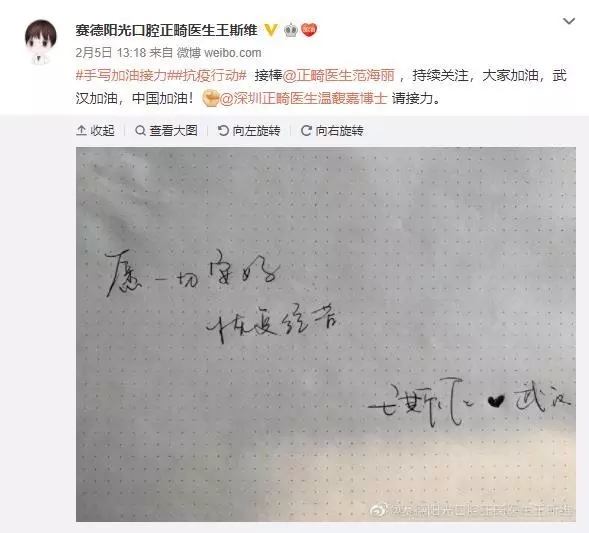 赛德阳光口腔正畸医生王斯维
2月5日 13:18 来自 微博 weibo.com
#手写加油接力##抗疫行动# 接棒@正畸医生范海丽 ，持续关注，大家加油，武
汉加油，中国加油！@深圳正畸医生温馥嘉博士 请接力。
收起 查看大图 向左旋转 向右旋转
愿一切安好
恢复经营
武汉
@赛德阳光口腔正畸医生王斯维